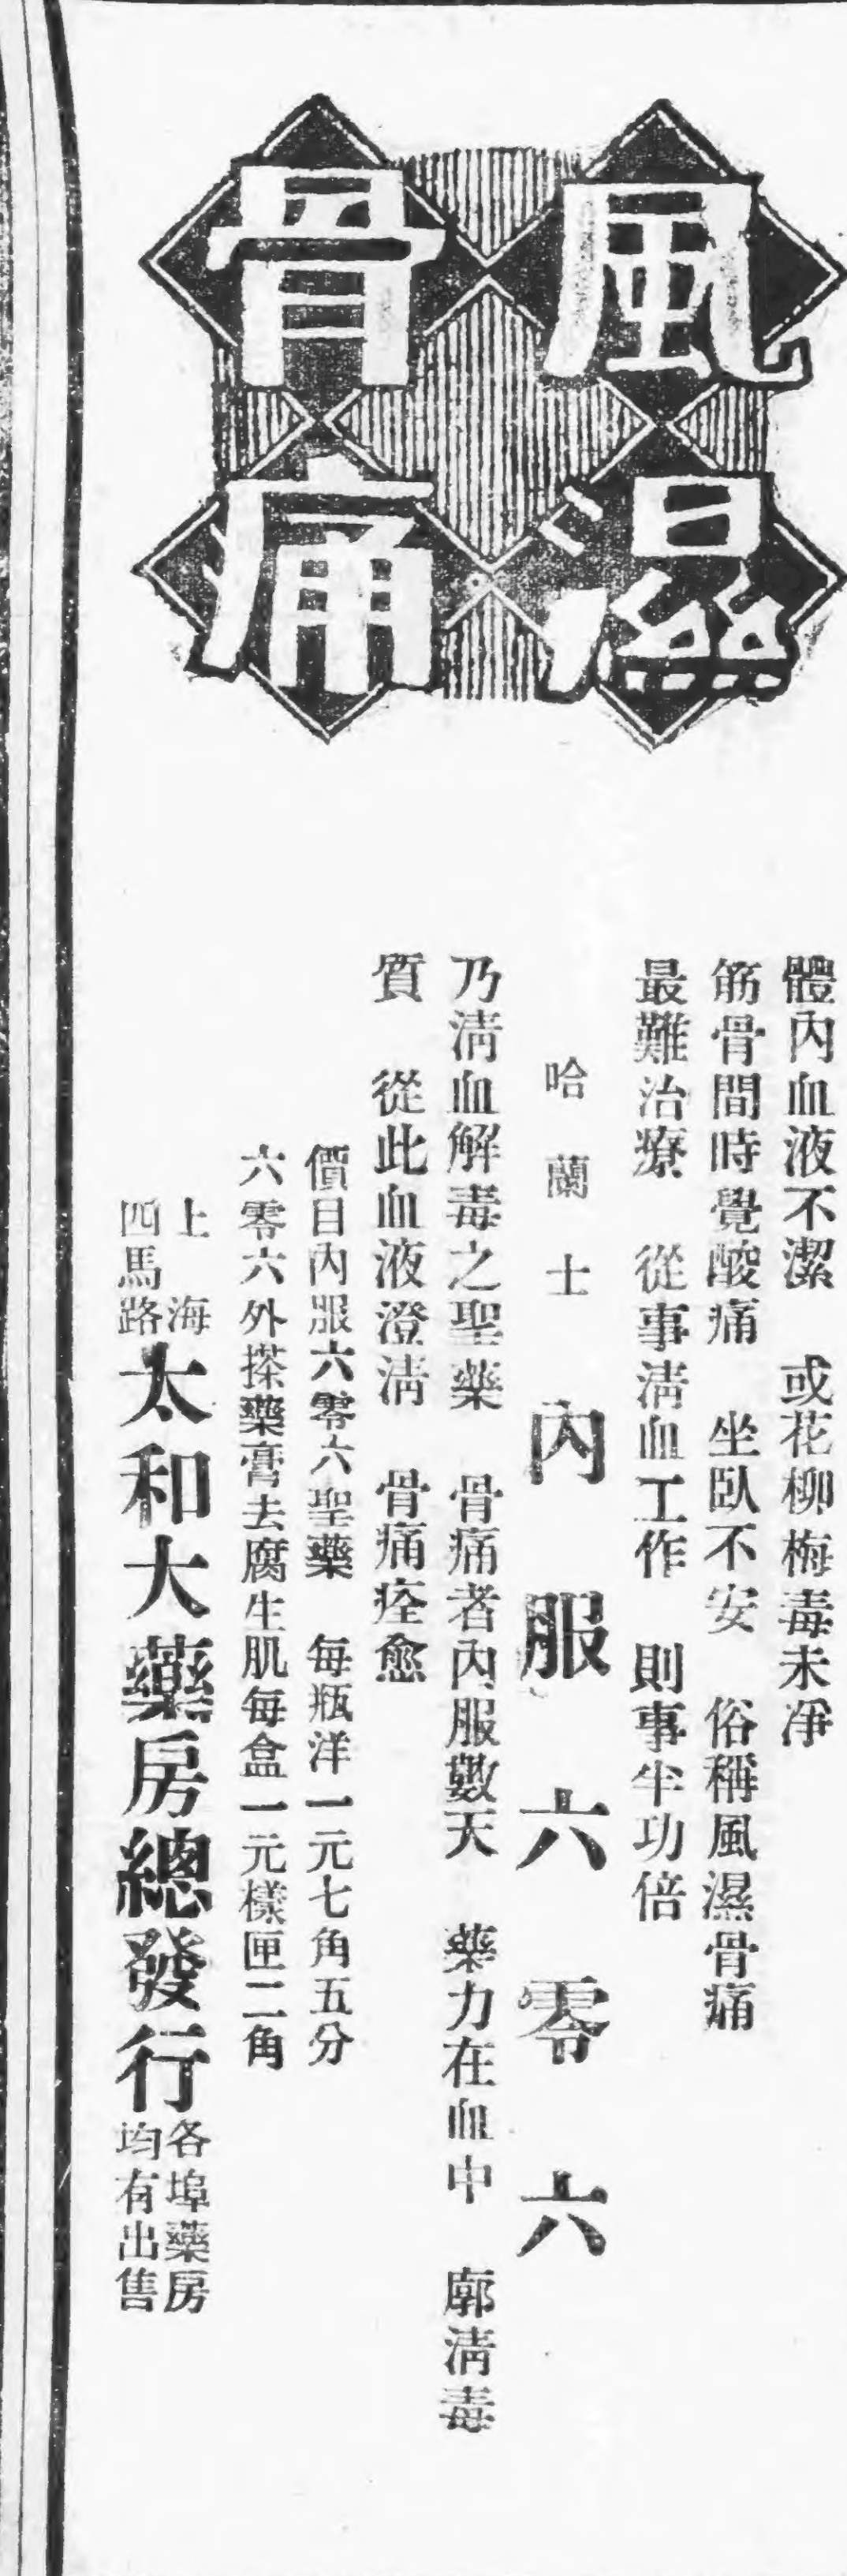 風濕
骨痛
體內血液不潔　或花柳梅毒未凈
筋骨間時覺酸痛　坐臥不安　俗稱風濕骨痛
最難治療　從事淸血工作　則事半功倍
哈蘭士　內服六零六
乃淸血解毒之聖藥　骨痛者內服數天　藥力在血中　廓淸毒
質　從此血液澄淸　骨痛痊愈
價目內服六零六聖藥　每瓶洋一元七角五分
六零六外搽藥膏去腐生肌每盒一元樣匣二角
上海
四馬路
太和大藥房總發行
各埠藥房
均有出售